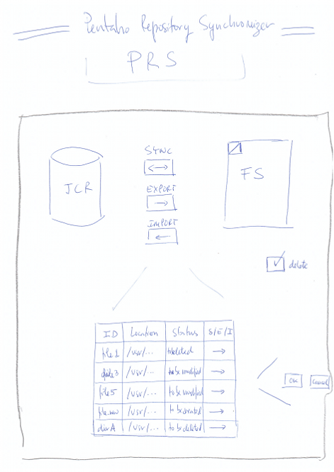 Pentaho Repository Synchronizer
PRS
SYNC
JCR
EXPORT
FS
IMPORT
delete
ID Location Status S/E/I
file1 /usr/...
/usr/... to be modified
file5 /usr/... to be modified
file.new /usr/... to be created
dirA /usr/... to be deleted
Cancel